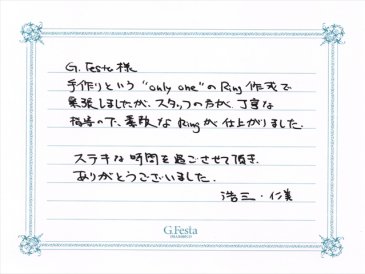 G. Festa 様
手作りという "only one" の Ring 作成で
緊張しましたが、スタッフの方が、丁寧な
指導ので、素敵な Ringが 仕上がりました.
ステキな 時間を 過ごさせて頂き.
ありがとうございました.
浩三・仁美
G.Festa